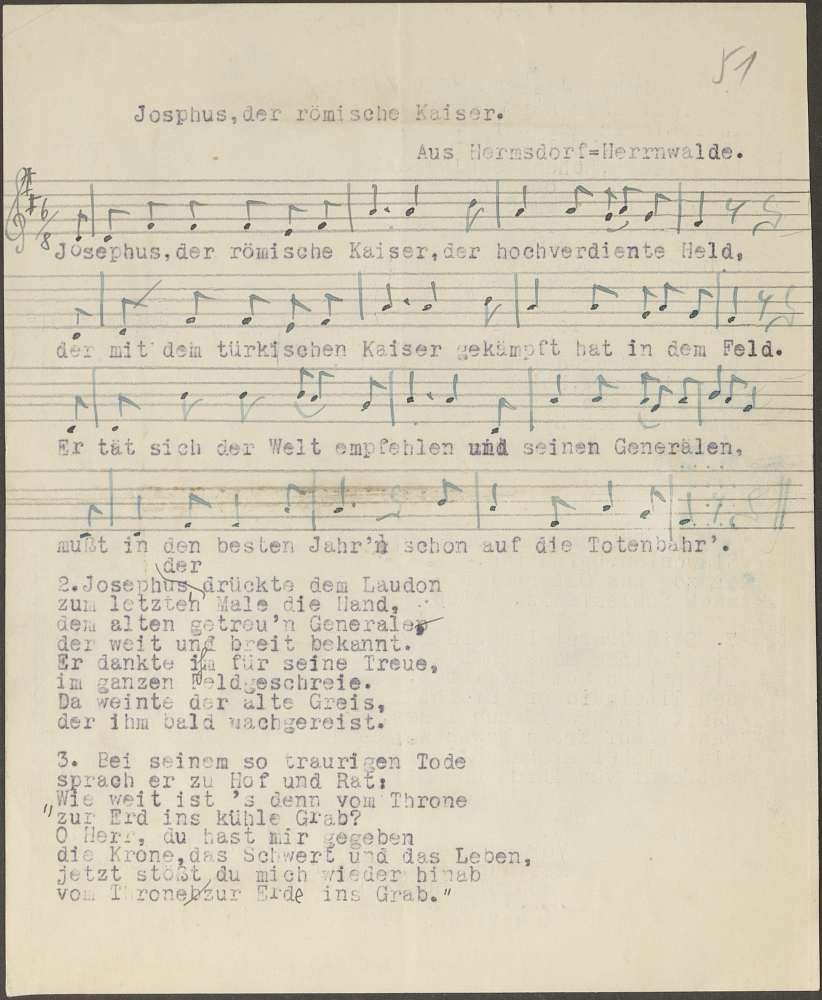 51
Josphus,der römische Kaiser.
Aus Hermsdorf=Herrnwalde.
6/8
Josephus,der römische Kaiser,der hochverdiente Held,
der mit dem türkischen Kaiser gekämpft hat in dem Feld.
Er tät sich der Welt empfehlen und seinen Generälen,
mußt in den besten Jahr'n schon auf die Totenbahr'.
der
2.Josephus drückte dem Laudon
zum letzten Male die Hand,
dem alten getreu'n Generale,
der weit und breit bekannt.
Er dankte im für seine Treue,
im ganzen Feldgeschreie.
Da weinte der alte Greis,
der ihm bald nachgereist.
3. Bei seinem so traurigen Tode
sprach er zu Hof und Rat:
Wie weit ist 's denn vom Throne
"zur Erd ins kühle Grab?
O Herr, du hast mir gegeben
die Krone,das Schwert und das Leben,
jetzt stößt du mich wieder hinab
vom Throne zur Erde ins Grab."